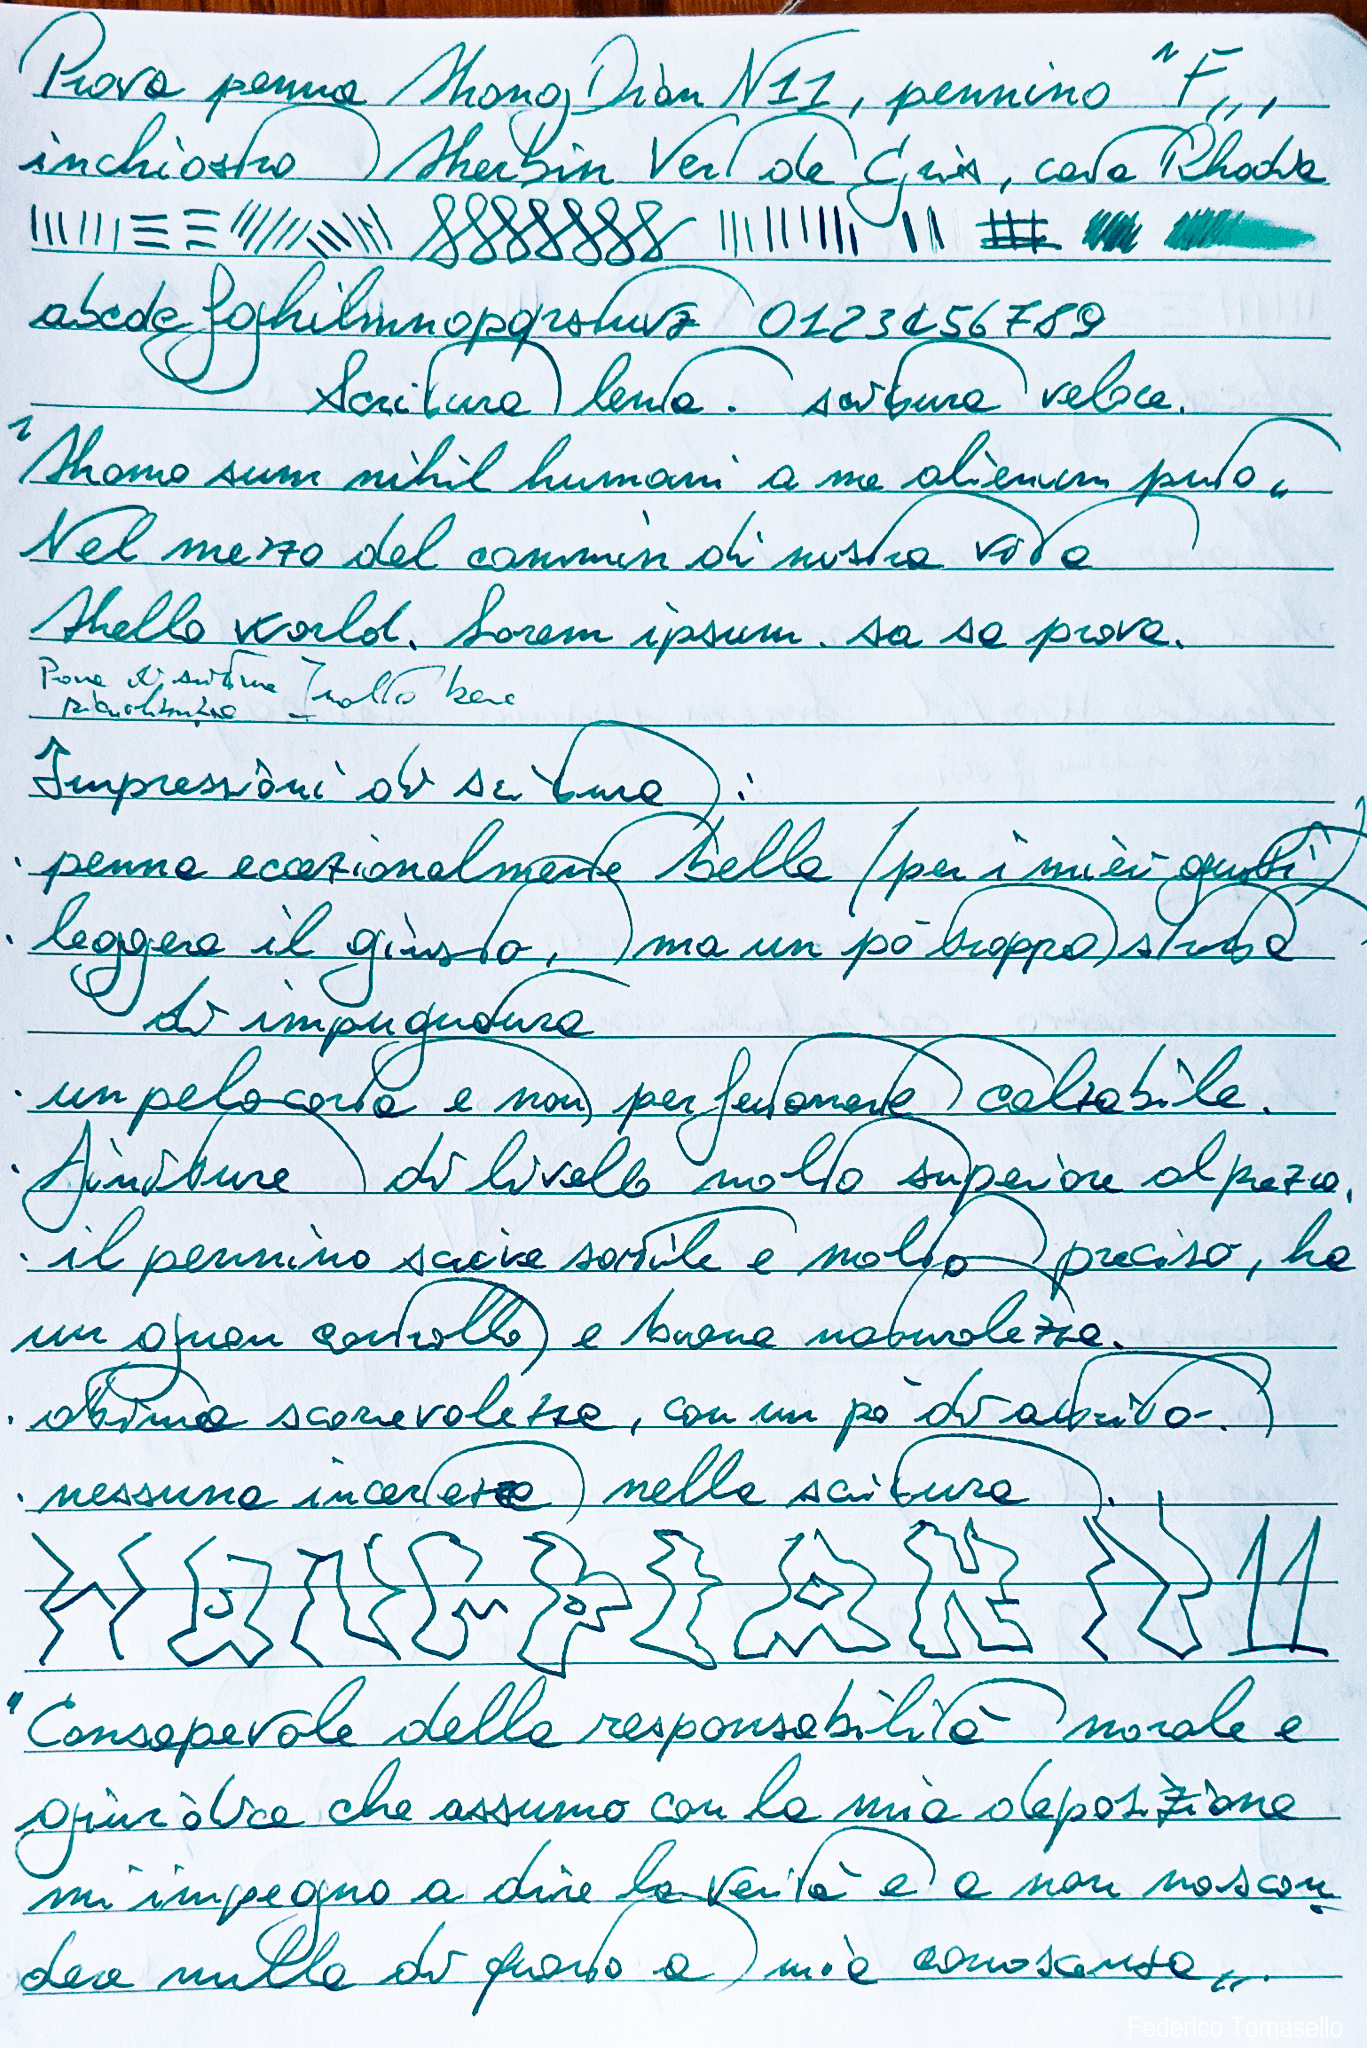 Prova penna HongDian N11, pennino "F",
inchiostro Herbin Vert de Gris, carta Rhodia
abcdefghilmnopqrstuvz 0123456789
Scrittura lenta. scrittura veloce.
"Homo sum nihil humani a me alienum puto"
Nel mezzo del cammin di nostra vita
Hello world. Lorem ipsum. sa sa prova.
Prova di scrittura molto bene
piccolissima
Impressioni di scrittura:
· penna eccezionalmente bella (per i miei gusti)
· leggera il giusto, ma un pò troppo stretta
di impugnatura
· un pelo corta e non perfettamente calzabile.
· finiture di livello molto superiore al prezzo.
· il pennino scrive sottile e molto preciso, ha
un gran controllo e buona naturalezza.
· ottima scorrevolezza, con un pò di attrito.
· nessuna incertezza nella scrittura.
HONGDIAN N11
"Consapevole della responsabilità morale e
giuridica che assumo con la mia deposizione
mi impegno a dire la verità e a non nascon
dere nulla di quanto a mia conoscenza".
Federico Tomasello